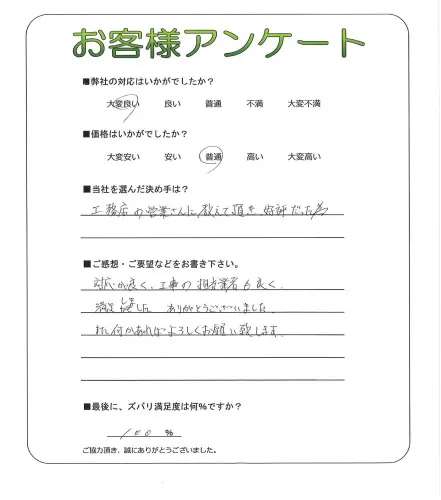 お客様アンケート
■弊社の対応はいかがでしたか？
大変良い 良い 普通 不満 大変不満
■価格はいかがでしたか？
大変安い 安い 普通 高い 大変高い
■当社を選んだ決め手は？
工務店の営業さんに教えて頂き、好評だった為
■ご感想・ご要望などをお書き下さい。
対応が良く、工事の担当業者も良く、
満足しました ありがとうございました
また何かあればよろしくお願い致します。
■最後に、ズバリ満足度は何％ですか？
100 %
ご協力頂き、誠にありがとうございました。